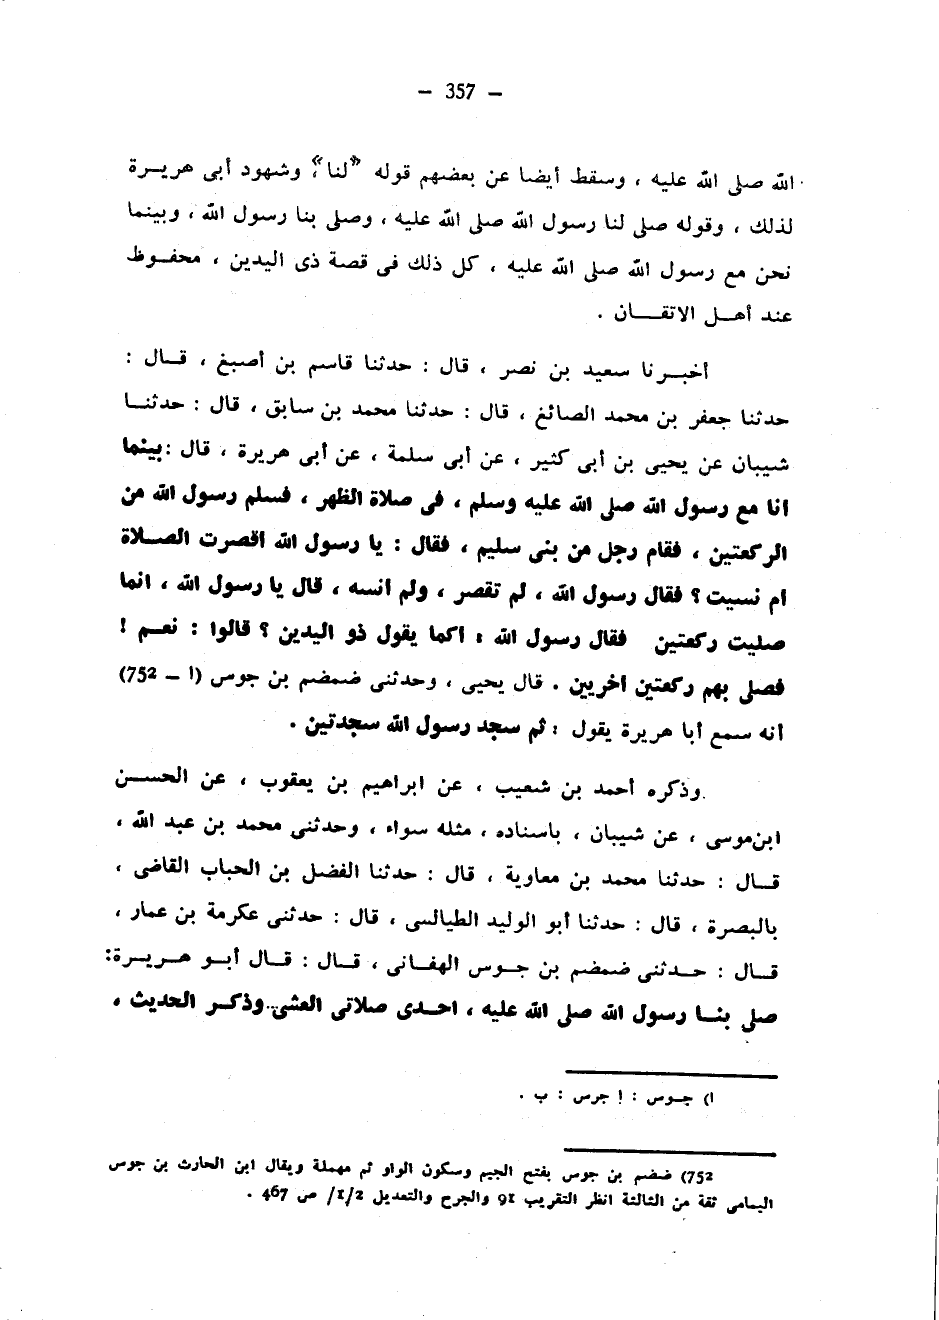 — 357 —
الله صلى الله عليه ، وسقط أيضا عن بعضهم قوله «لنا»؛ وشهود أبى هريرة
لذلك ، وقوله صلى لنا رسول الله صلى الله عليه ، وصلى بنا رسول الله ، وبينما
نحن مع رسول الله صلى الله عليه ، كل ذلك فى قصة ذى اليدين ، محفوظ
عند أهل الاتقان .
أخبرنا سعيد بن نصر ، قال : حدثنا قاسم بن أصبغ ، قال :
حدثنا جعفر بن محمد الصائغ ، قال : حدثنا محمد بن سابق ، قال : حدثنا
شيبان عن يحيى بن أبى كثير ، عن أبى سلمة ، عن أبى هريرة ، قال : بينما
انا مع رسول الله صلى الله عليه وسلم ، فى صلاة الظهر ، فسلم رسول الله من
الركعتين ، فقام رجل من بنى سليم ، فقال : يا رسول الله اقصرت الصلاة
ام نسيت ؟ فقال رسول الله ، لم تقصر ، ولم انسه ، قال يا رسول الله ، انما
صليت ركعتين فقال رسول الله : اكما يقول ذو اليدين ؟ قالوا : نعم !
فصلى بهم ركعتين اخريين . قال يحيى ، وحدثنى ضمضم بن جوس (ا – 752)
أنه سمع أبا هريرة يقول : ثم سجد رسول الله سجدتين .
وذكره أحمد بن شعيب ، عن ابراهيم بن يعقوب ، عن الحسن
ابن موسى ، عن شيبان ، باسناده ، مثله سواء ، وحدثنى محمد بن عبد الله ،
قال : حدثنا محمد بن معاوية ، قال : حدثنا الفضل بن الحباب القاضى ،
بالبصرة ، قال : حدثنا أبو الوليد الطيالسى ، قال : حدثنى عكرمة بن عمار ،
قال : حدثنى ضمضم بن جوس الهفانى ، قال : قال أبو هريرة :
صلى بنا رسول الله صلى الله عليه ، احدى صلاتى العشى. وذكر الحديث ،
ا) جوس : ا جرس : ب .
752) ضمضم بن جوس بفتح الجيم وسكون الواو ثم مهملة ويقال ابن الحارث بن جوس
اليمامى ثقة من الثالثة انظر التقريب 91 والجرح والتعديل 1/2/ ص 467 .